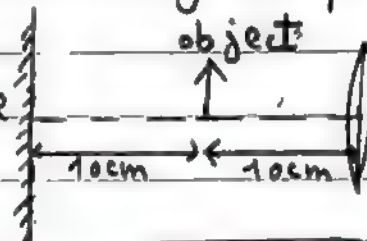 object
10cm 10cm